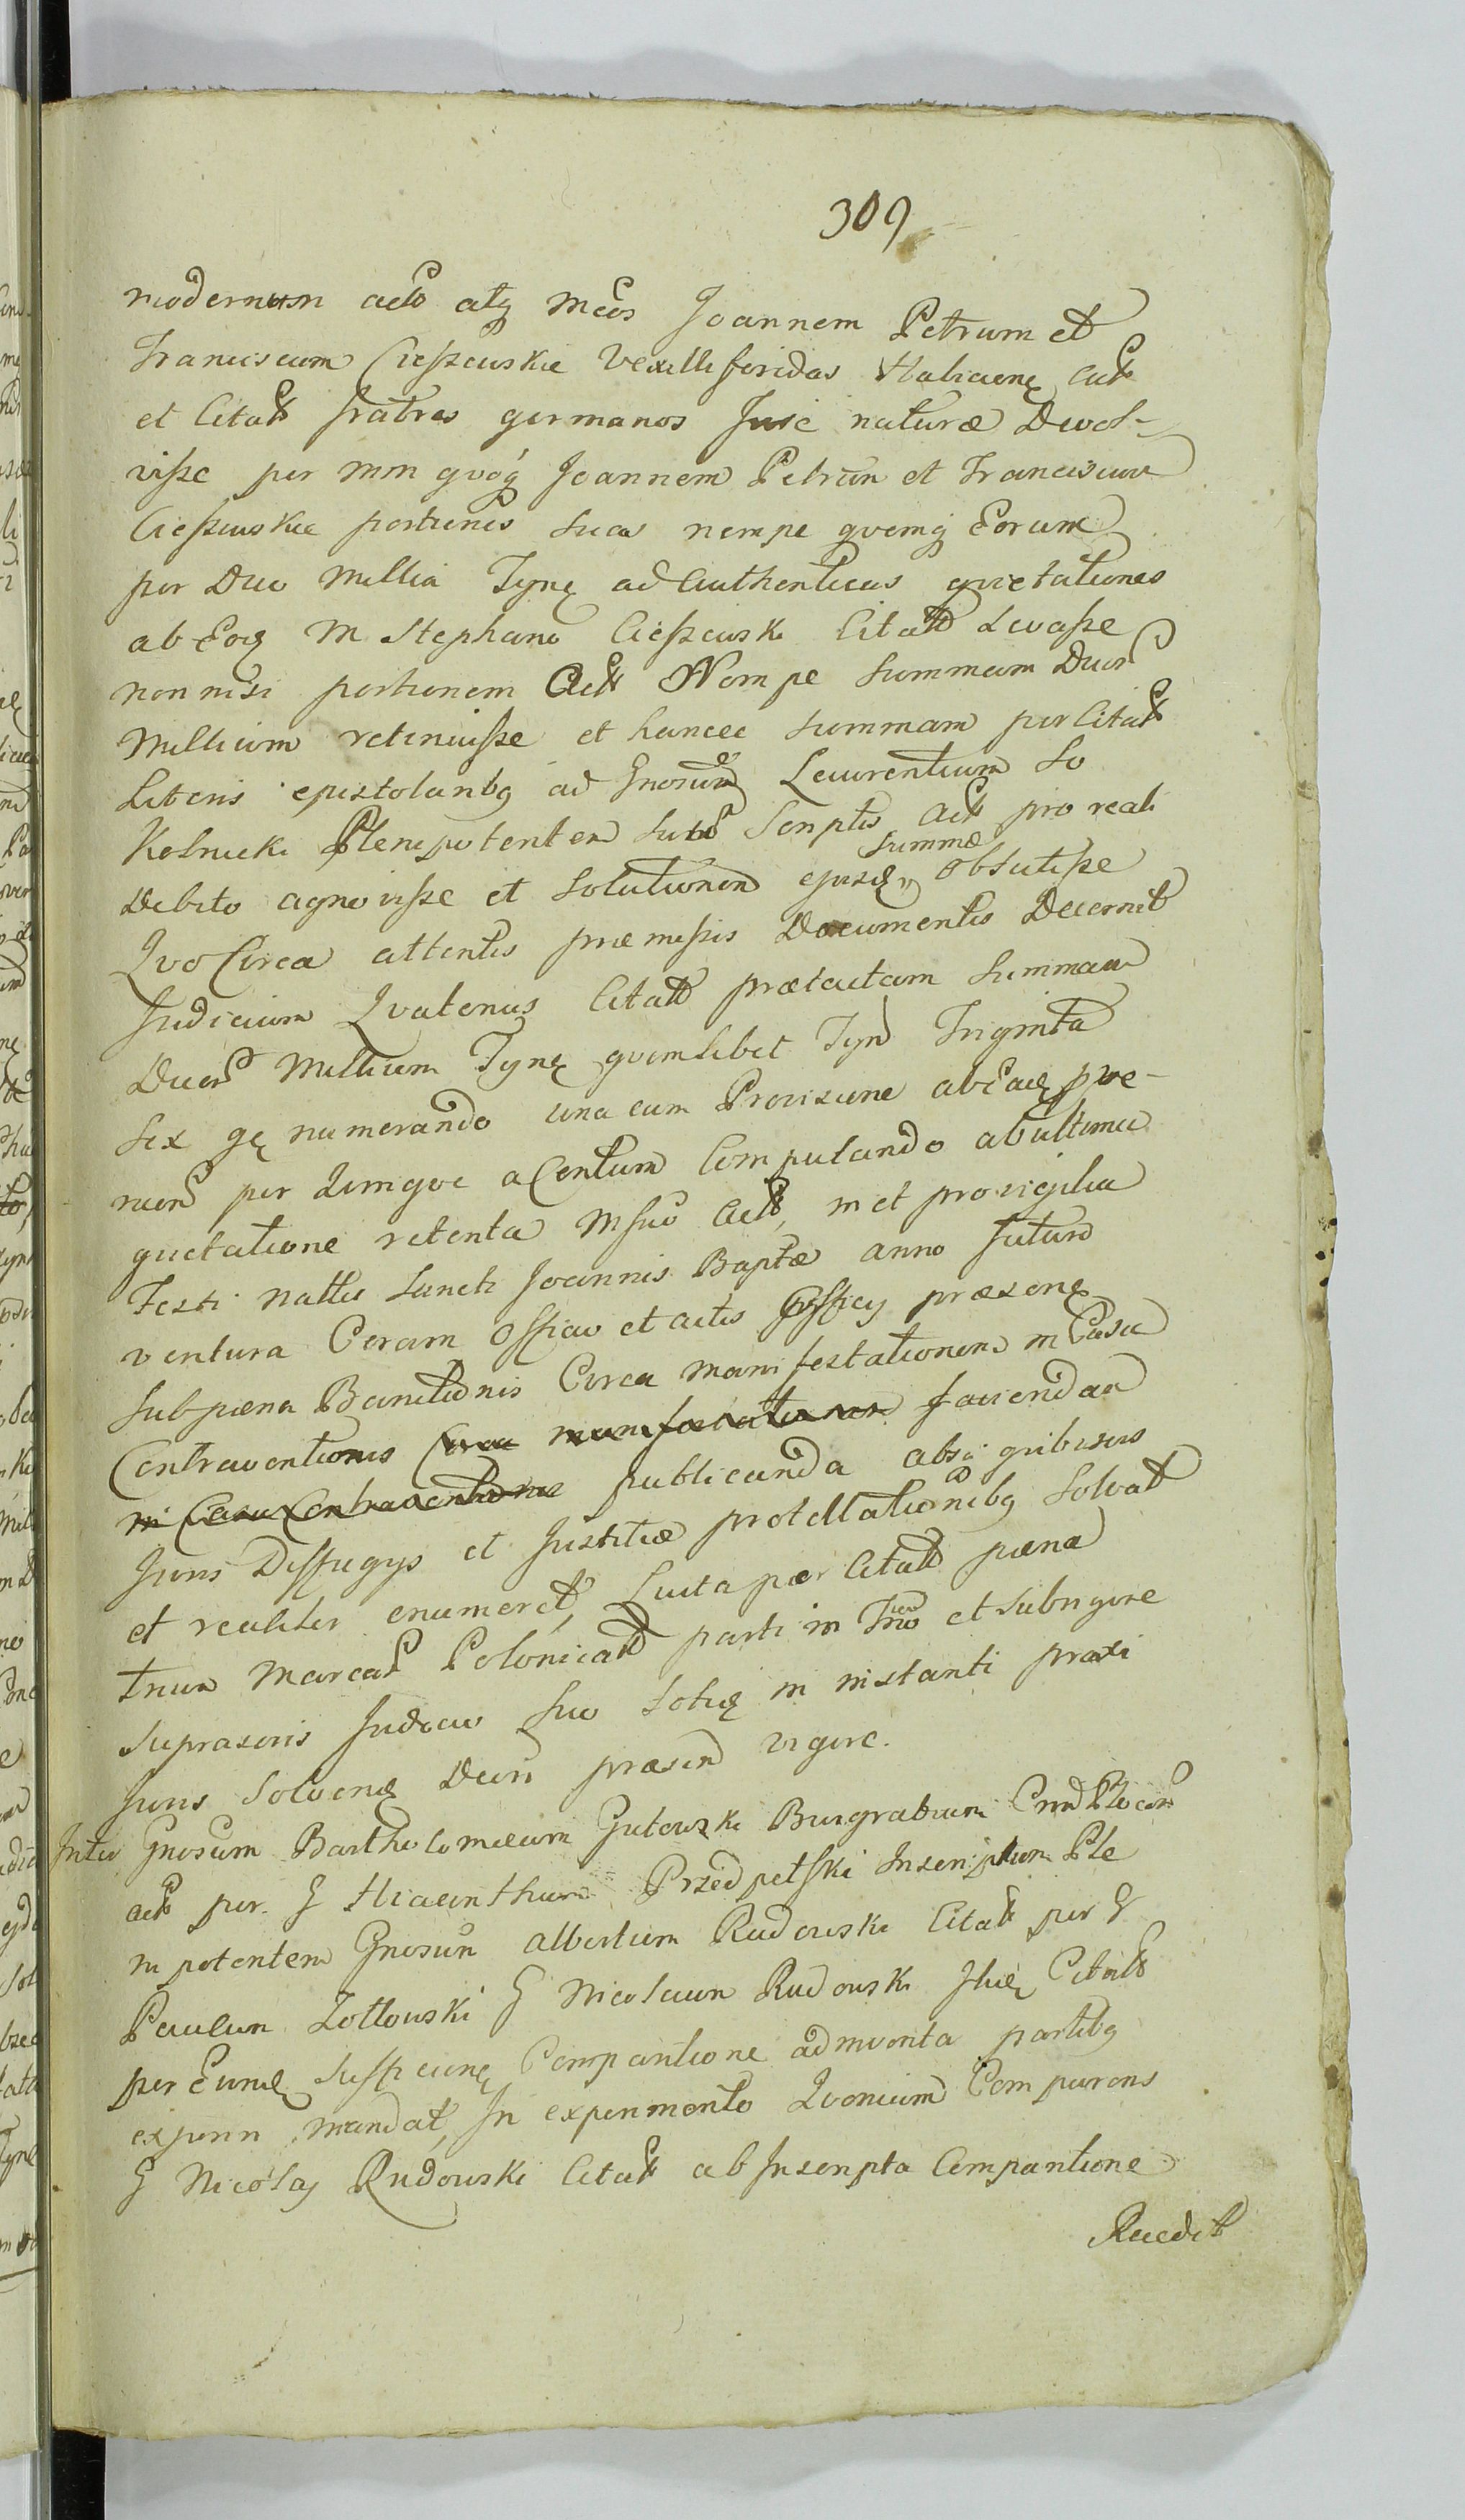 309
modernum acto atq Mcos Joannem Petrum et
Franciscum Cieszewskie Vexilliferidas Halicien Act
et Citat fratres germanos Jure naturæ Devol-
visse per Mm qvoq Joannem Petrum et Franciscum
Cieszewskie portiones suas nempe qvemq Eorum
per Duo Millia Tynf ad Authenticas qvietationes
ab Eod M Stephano Cieszewski Citato Levasse
non nisi portionem Act Nempe Summam Duor
Millium retinuisse et hancce summam per Citat
Literis epistolaribq ad Gnosum Laurentium So
Kolnicki Plenipotentem suum Scriptis Act pro reali
Debito agnovisse et Solutionem ejusd summæ obsutisse
Qvo Circa attentis præmissis Documentis Decernit
Judicium Qvatenus Citato prætactam Summam
Duor Millium Tynf qvemlibet Tynf Triginta
Sex gr numerando una cum Provisione ab Ead prove-
nien per Qvinqve a Centum Computando ab ultima
qvietatione retenta M suo Act, in et pro vigilia
Festi natlis Sancti Joannis Baptæ anno futuro
ventura Coram Officio et actis Officij præsen
sub pæna Bannitionis Circa manifestationem in Casu
Contraventionis Circa manifestationem faciendam
in Casu Contraventionis publicanda absq qvibusvis
Juris Diffugijs et Justitiæ protellationibq Solvat
et realiter enumeret, Luita per Citato pæna
trium Marcar Polonical parti in Trio et sub rigore
suprascris Judicio suo Solut in instanti praxi
Juris Solven Decri præsen vigore.
Inter Gnosum Bartholomæum Gutowski Burgrabium Crem Plocen
act per G Hiacinthum Przedpelski Inscriptum Ple
nipotentem Gnosum Albertum Rudowski Citat per G
Paulum Zottowski G Nicolaum Rudowski Itid Citat
per Eund Sufficien Comparitione adinventa partibq
experiri mandat, In experimento Qvoniam Comparens
G Nicolaj Rudowski Citat ab Inscripta Comparitione
Recedit